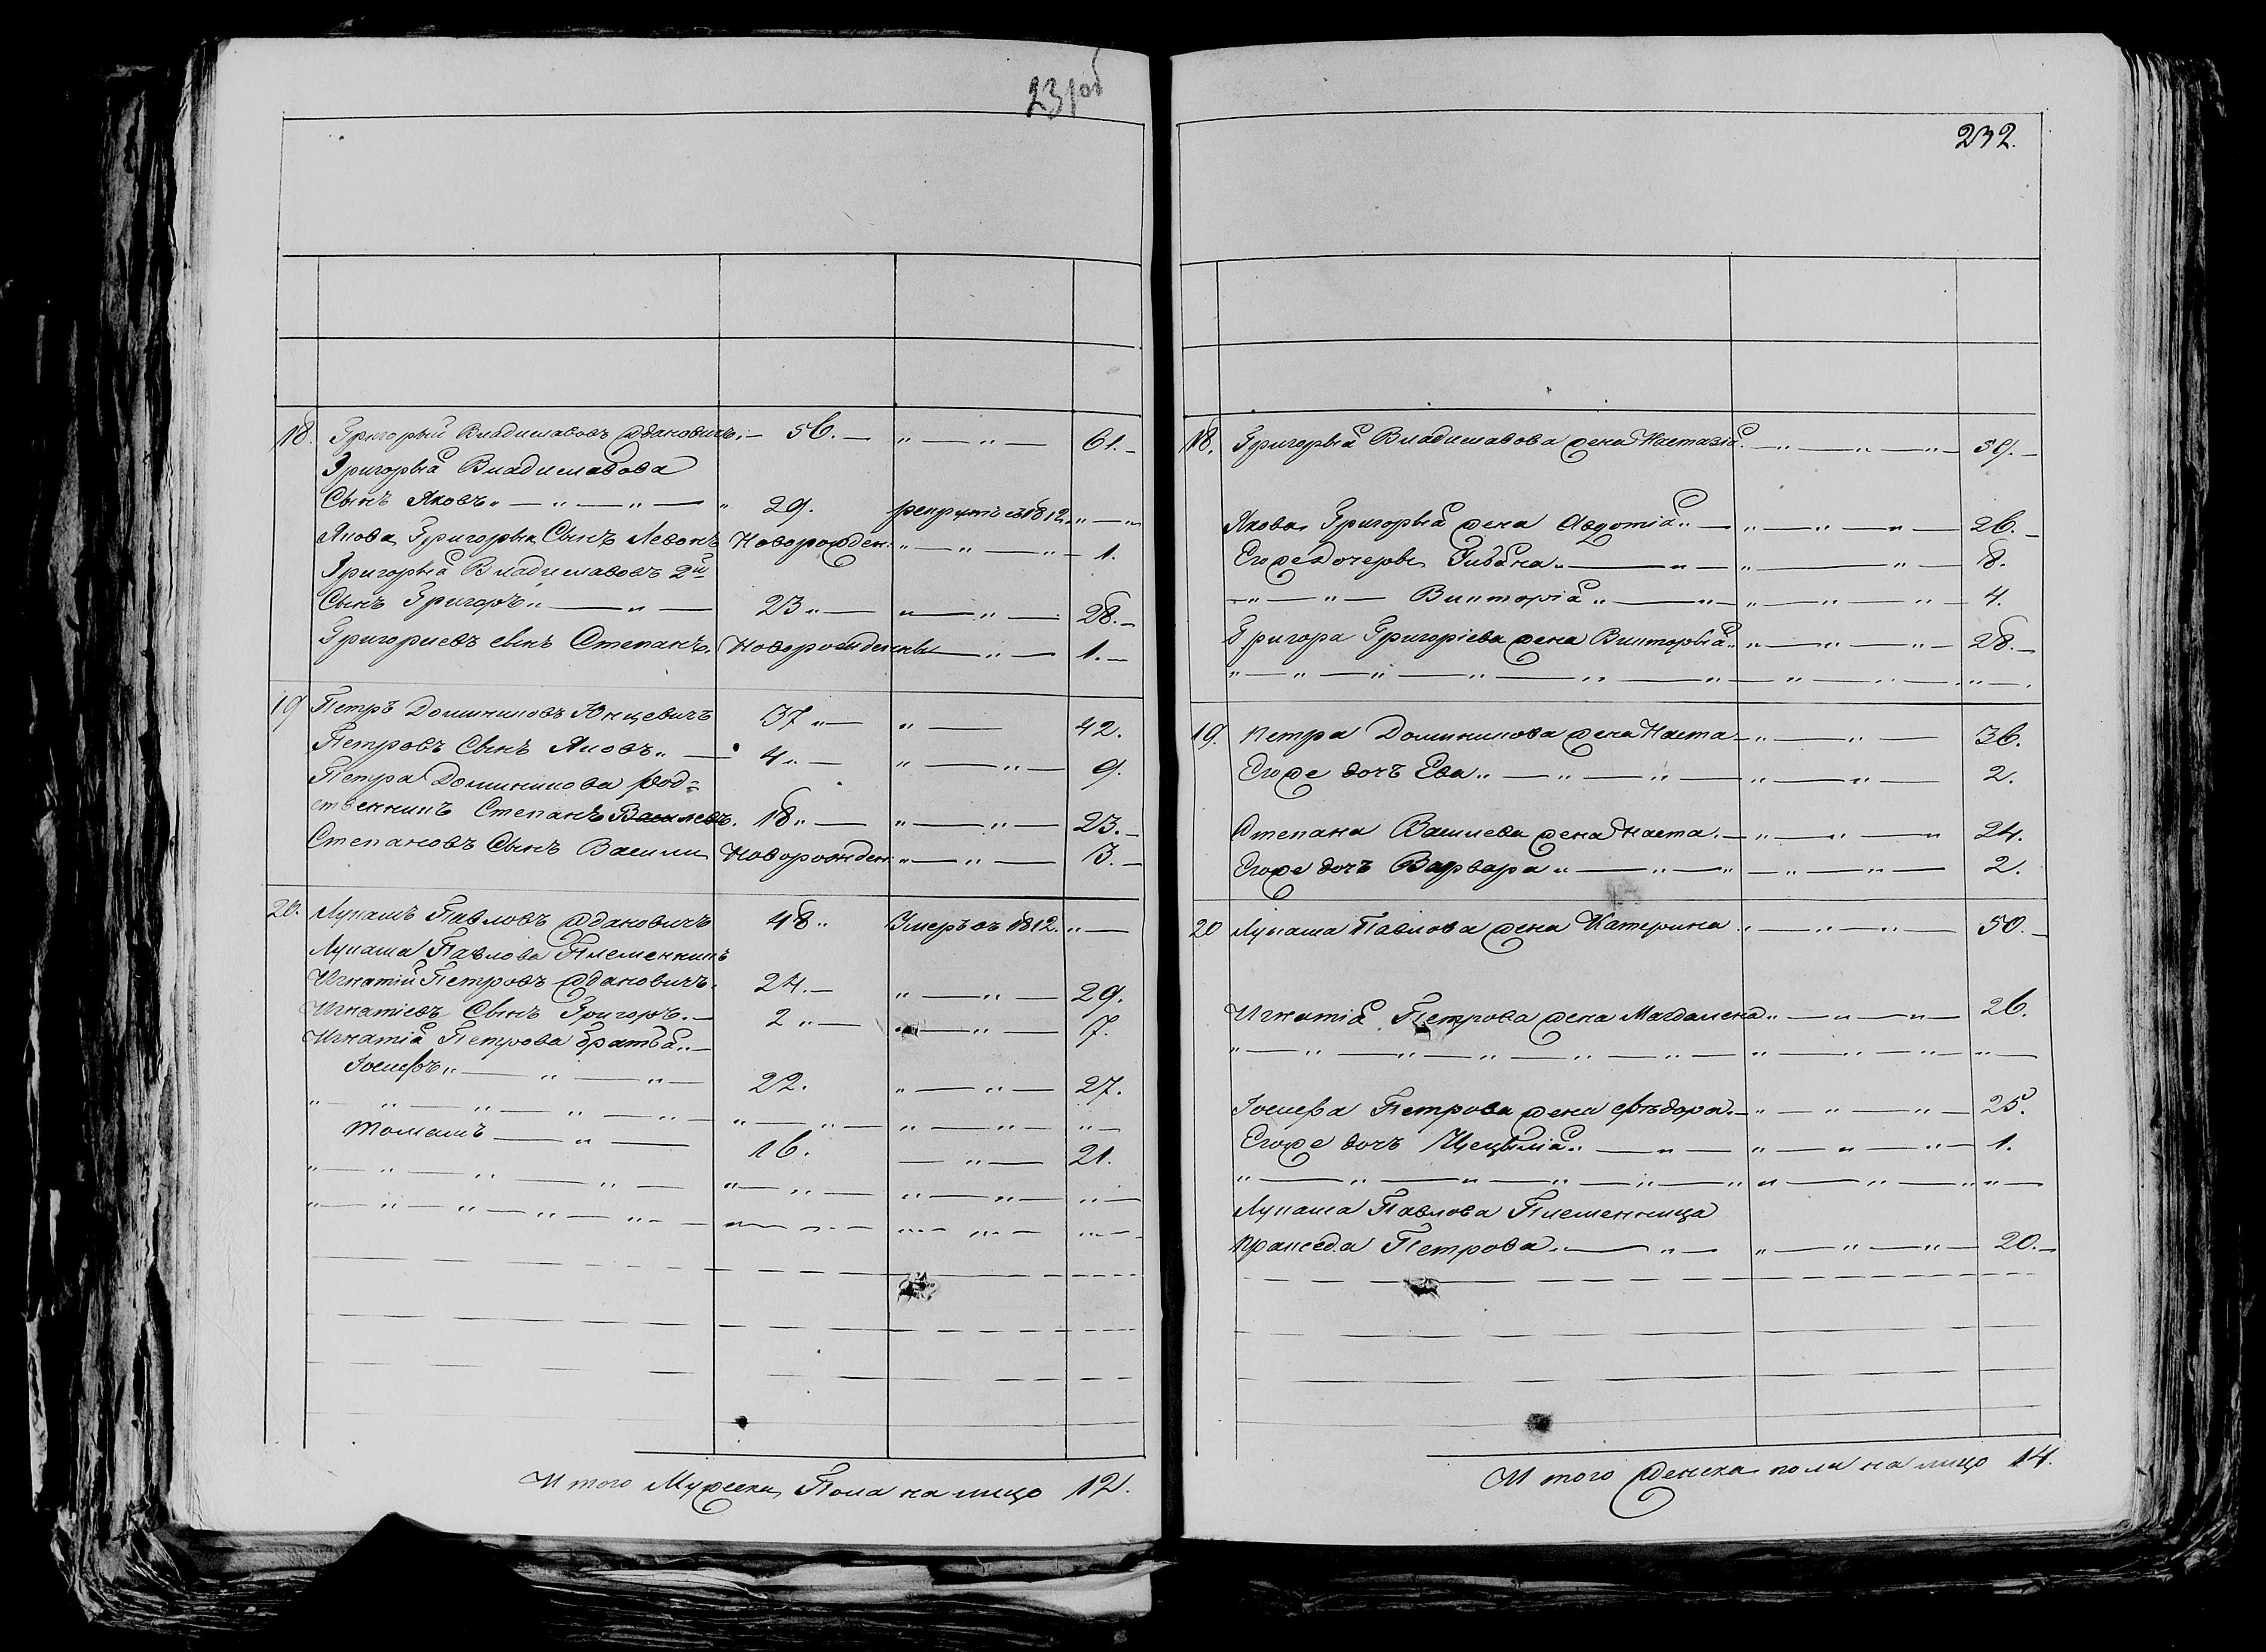 231об
18. Григорый Владиславовъ Ждановичъ. 56. 61.
Григорыя Владиславова
Сынъ Яковъ 29. рекрутъ въ 1812.
Якова Григорыя Сынъ Левонъ Новорожден. 1.
Григорыя Владиславовъ 2й
Сынъ Григоръ 23 28.
Григориевъ сынъ Степанъ. Новорожденны 1.
19 Петръ Доминиковъ Юнцевичъ 37 42.
Петровъ Сынъ Яковъ 4 9.
Петра Доминикова род=
ственникъ Степанъ Василевъ. 18 23.
Степановъ Сынъ Васили Новорожден 3.
20. Лукашъ Павловъ Ждановичъ 48 Умеръ въ 1812.
Лукаша Павлова Племенникъ
Игнатій Петровъ Ждановичъ. 24. 29.
Игнатіевъ Сынъ Григоръ. 2 7.
Игнатія Петрова братья
Іосифъ 22. 27.
Томашъ 16. 21.
И того Мужеска Пола на лицо 12.
232.
18. Григорыя Владиславова жена Настазія. 59.
Якова Григорыя жена Авдотія 26.
Егоже дочеры Гивана 8.
Викторія 4.
Григора Григоріева жена Викторыя 28.
19. Петра Доминикова жена Наста 36.
Егоже дочъ Ева 2.
Степана Василева жена Наста. 24.
Егоже дочъ Варвара 2.
20 Лукаша Павлова жена Катерина 50.
Игнатія Петрова жена Магдалена 26.
Іосифа Петрова жена Ѳѣдора. 25.
Егоже дочъ Цецылія 1.
Лукаша Павлова Племенница
Праксѣда Петрова. 20.
И того Женска пола на лицо 14.